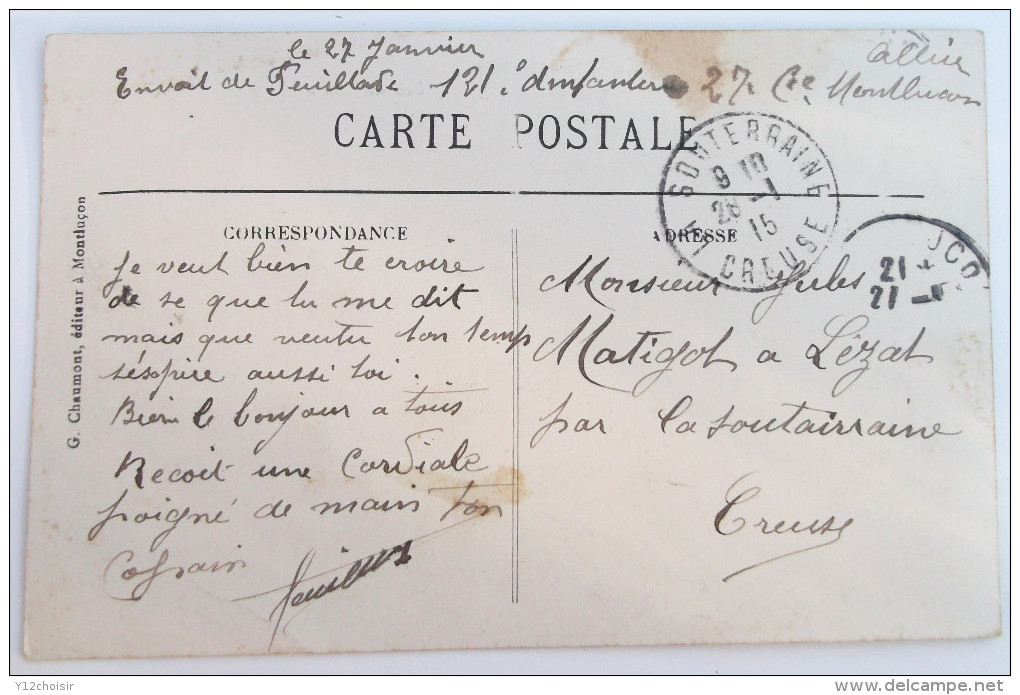 le 27 Janvier
Allier
Envoit de Feuillade 121e d'infanterie 27e Cie Montlucon
CARTE POSTALE
LA SOUTERRAINE
9 10
28 -1
15
CREUSE
CORRESPONDANCE
ADRESSE
21
27
G. Chaumont, éditeur à Montluçon
Je veut bien te croire
de se que tu me dit
mais que veutu ton temp
aussi toi.
Bien le bonjour a tous
Recoit une Cordiale
poigné de main ton
Monsieur Jules
Matigot a Lézat
par la soutairraine
Creuse
Y12choisir
www.delcampe.net